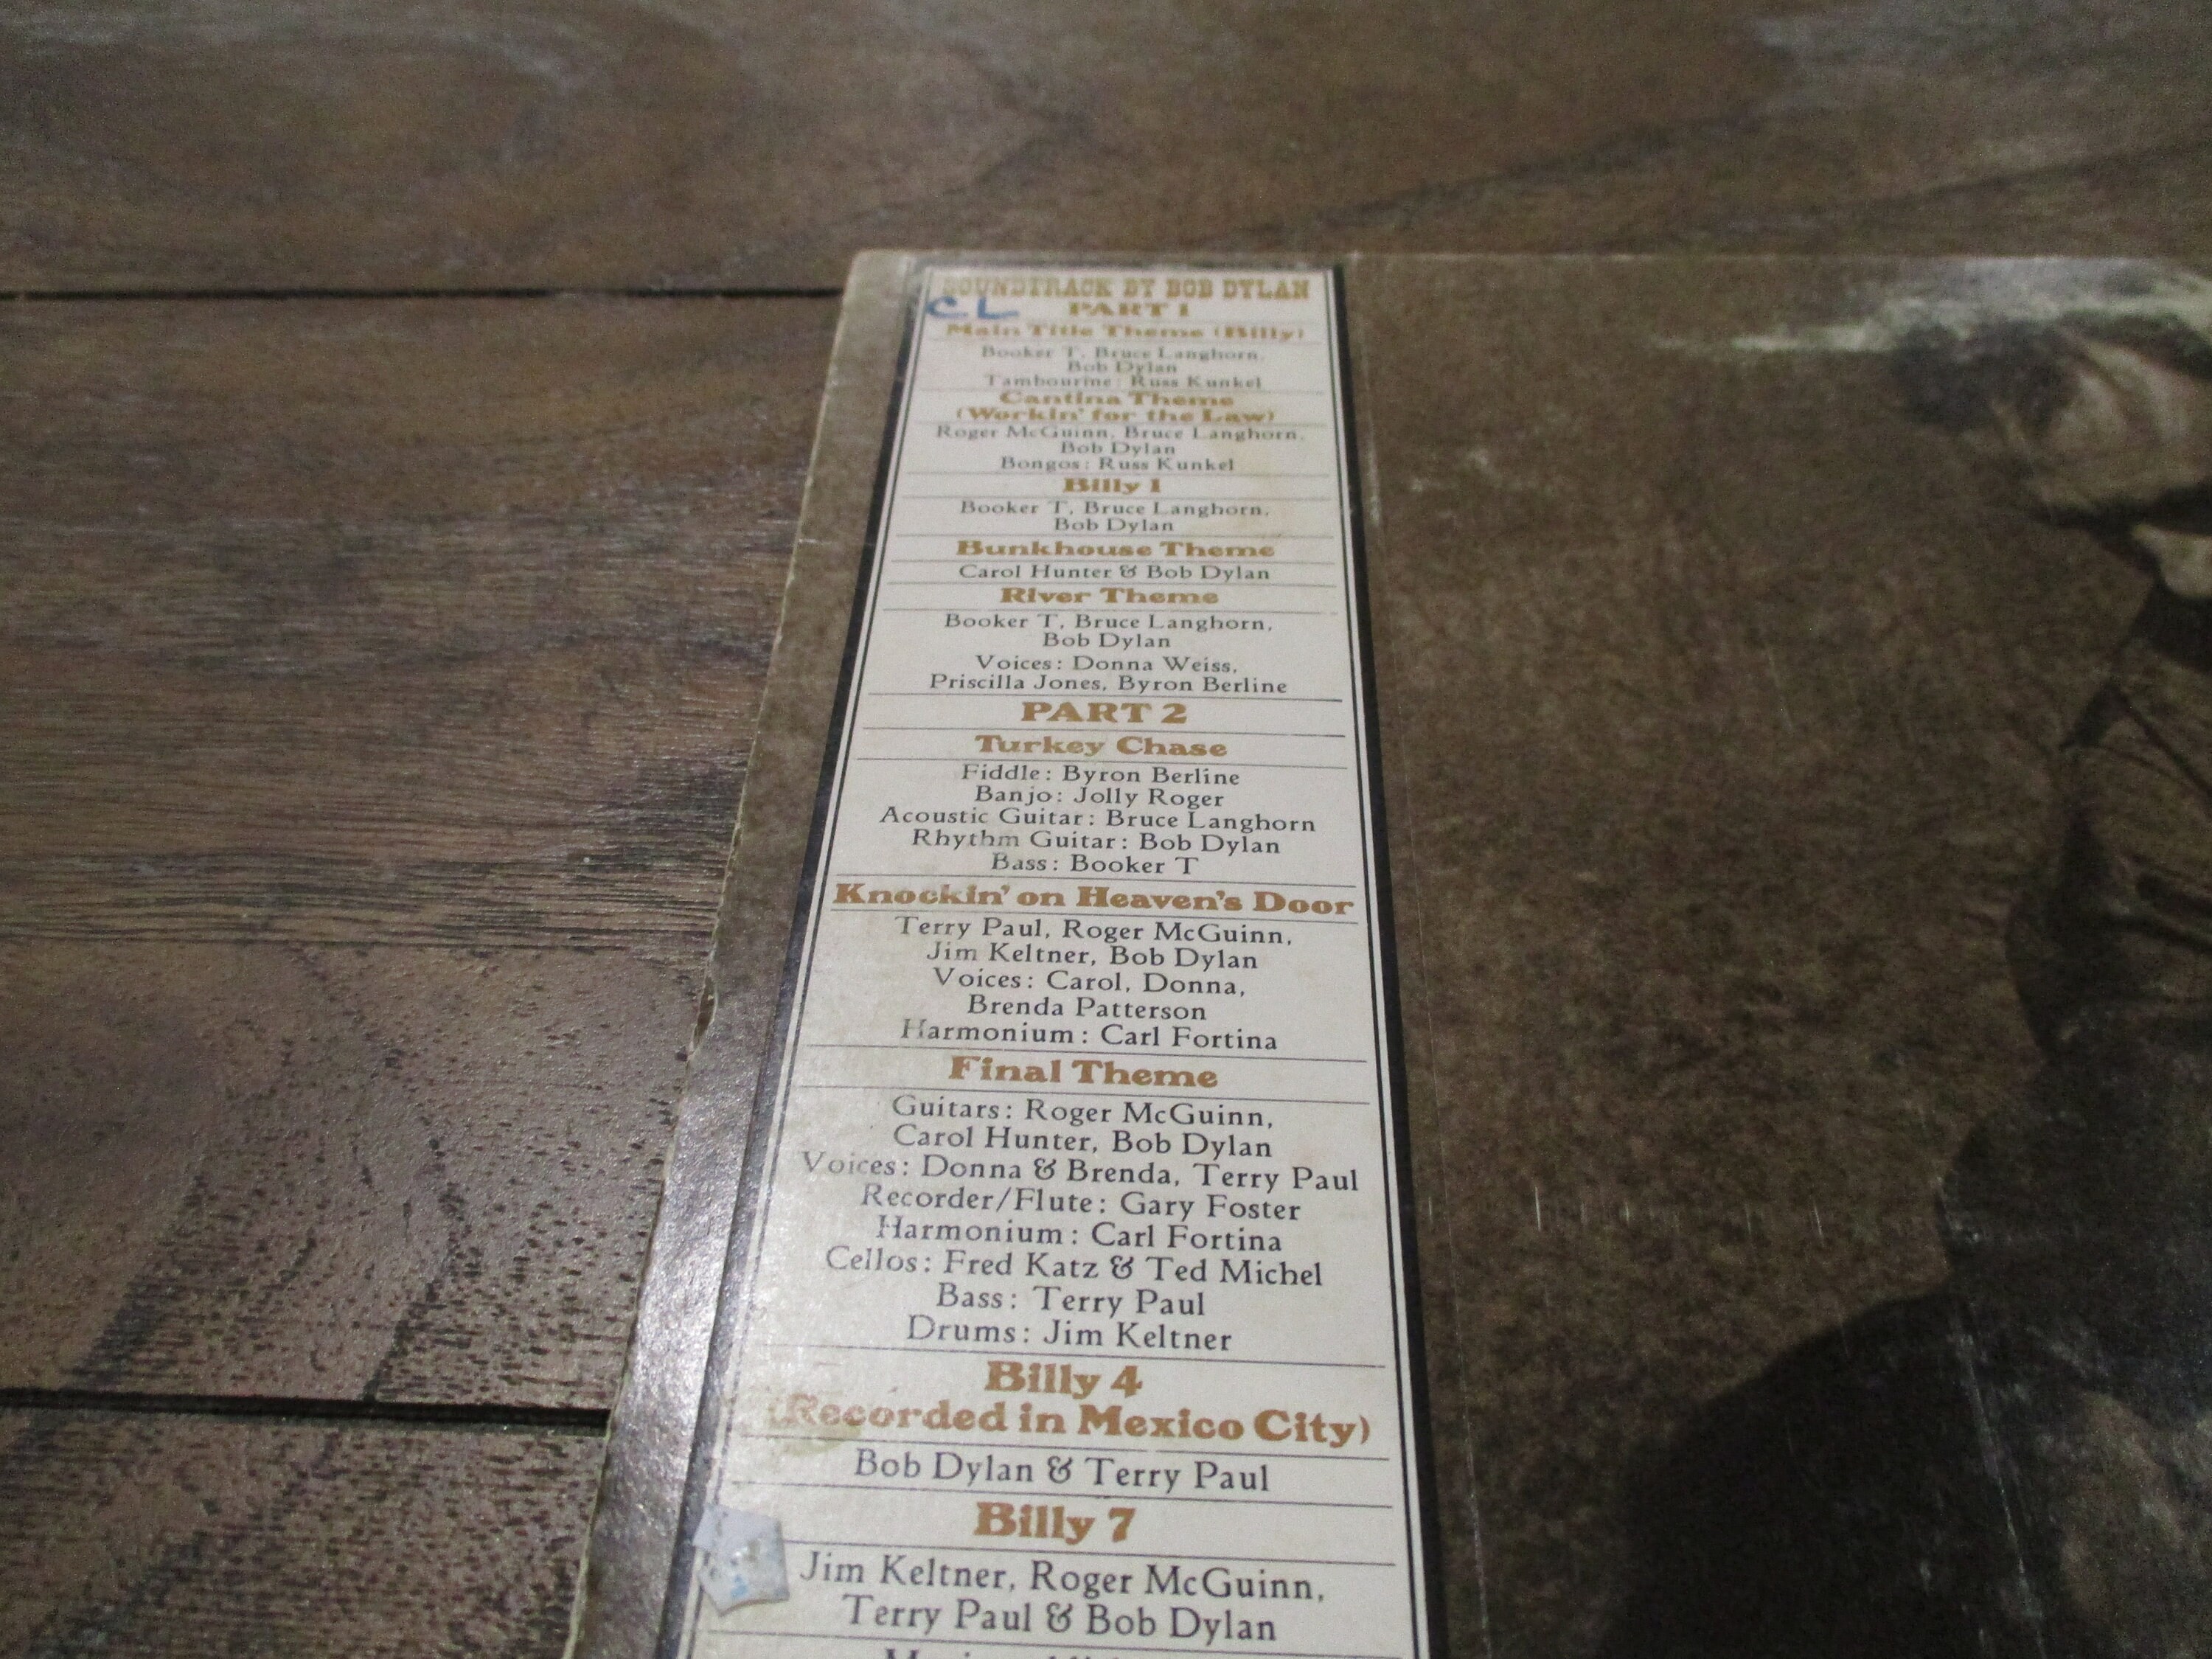 SOUNDTRACK BY BOB DYLAN
C.L
PART 1
Main Title Theme (Billy)
Booker T, Bruce Langhorn,
Bob Dylan
Tambourine: Russ Kunkel
Cantina Theme
(Workin' for the Law)
Roger McGuinn, Bruce Langhorn,
Bob Dylan
Bongos: Russ Kunkel
Billy 1
Booker T, Bruce Langhorn,
Bob Dylan
Bunkhouse Theme
Carol Hunter & Bob Dylan
River Theme
Booker T, Bruce Langhorn,
Bob Dylan
Voices: Donna Weiss,
Priscilla Jones, Byron Berline
PART 2
Turkey Chase
Fiddle: Byron Berline
Banjo: Jolly Roger
Acoustic Guitar: Bruce Langhorn
Rhythm Guitar: Bob Dylan
Bass: Booker T
Knockin' on Heaven's Door
Terry Paul, Roger McGuinn,
Jim Keltner, Bob Dylan
Voices: Carol, Donna,
Brenda Patterson
Harmonium: Carl Fortina
Final Theme
Guitars: Roger McGuinn,
Carol Hunter, Bob Dylan
Voices: Donna & Brenda, Terry Paul
Recorder/Flute: Gary Foster
Harmonium: Carl Fortina
Cellos: Fred Katz & Ted Michel
Bass: Terry Paul
Drums: Jim Keltner
Billy 4
(Recorded in Mexico City)
Bob Dylan & Terry Paul
Billy 7
Jim Keltner, Roger McGuinn,
Terry Paul & Bob Dylan